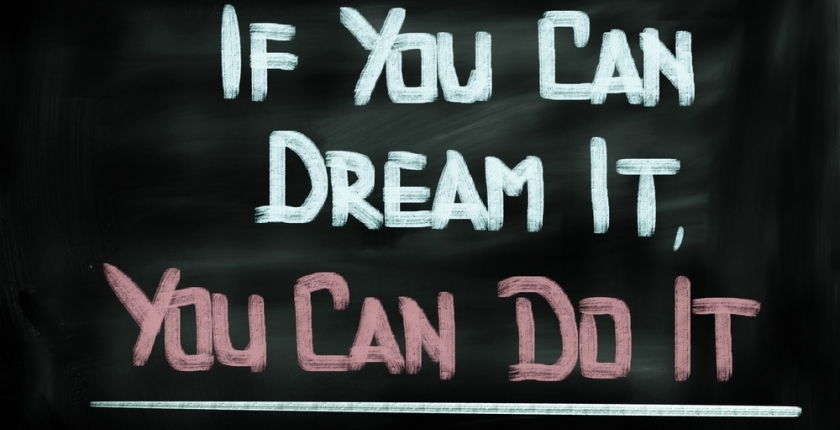 If You Can
Dream It,
You Can Do It